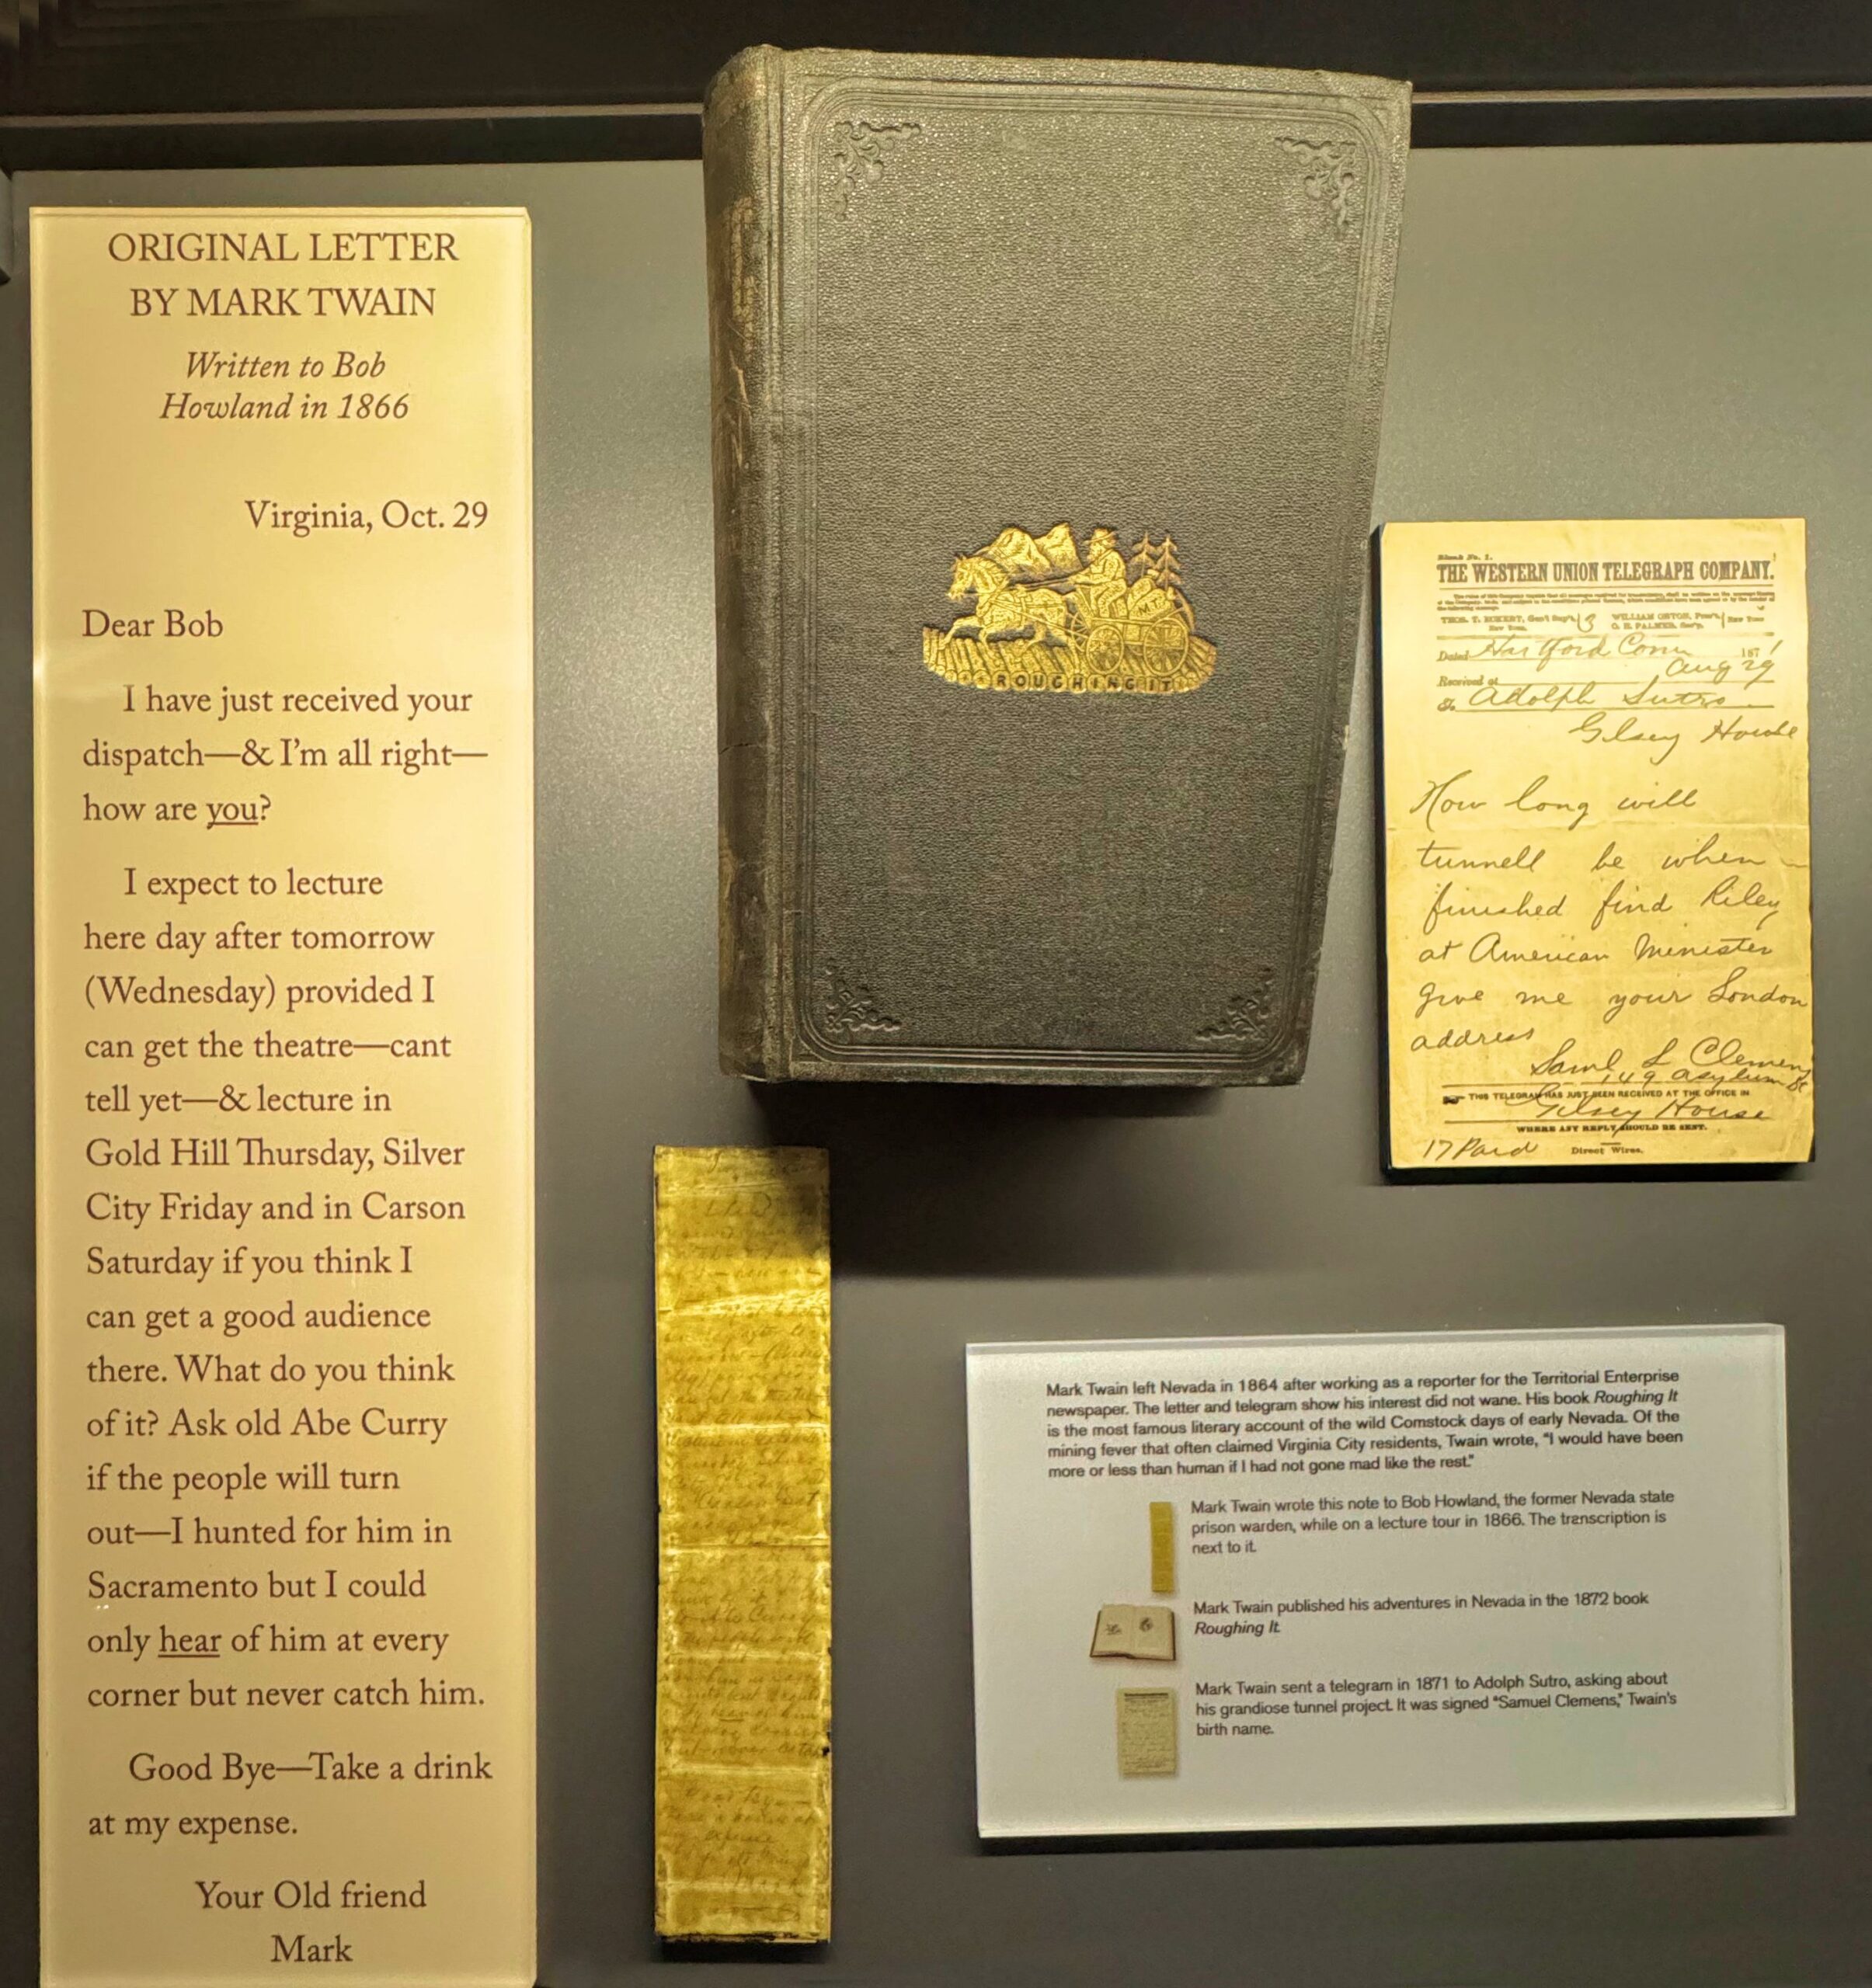 ORIGINAL LETTER
BY MARK TWAIN
Written to Bob
Howland in 1866
Virginia, Oct. 29
Dear Bob
I have just received your
dispatch—& I'm all right—
how are you?
I expect to lecture
here day after tomorrow
(Wednesday) provided I
can get the theatre—cant
tell yet—& lecture in
Gold Hill Thursday, Silver
City Friday and in Carson
Saturday if you think I
can get a good audience
there. What do you think
of it? Ask old Abe Curry
if the people will turn
out—I hunted for him in
Sacramento but I could
only hear of him at every
corner but never catch him.
Good Bye—Take a drink
at my expense.
Your Old friend
Mark
M.T.
ROUGHING IT
Blank No. 1.
THE WESTERN UNION TELEGRAPH COMPANY.
THOS. T. ECKERT, Gen'l Sup't, 13 WILLIAM ORTON, Pres't,
New York. O. H. PALMER, Sec'y. New York
Dated Hartford Conn 1871
Received at Aug 29
To Adolph Sutro
Gilsey House
How long will
tunnell be when
finished find Riley
at American Minister
Give me your London
address
Saml L Clemens
149 Asylum St
THIS TELEGRAM HAS JUST BEEN RECEIVED AT THE OFFICE IN
Gilsey House
WHERE ANY REPLY SHOULD BE SENT.
17 Paid Direct Wires.
Mark Twain left Nevada in 1864 after working as a reporter for the Territorial Enterprise
newspaper. The letter and telegram show his interest did not wane. His book Roughing It
is the most famous literary account of the wild Comstock days of early Nevada. Of the
mining fever that often claimed Virginia City residents, Twain wrote, "I would have been
more or less than human if I had not gone mad like the rest."
Mark Twain wrote this note to Bob Howland, the former Nevada state
prison warden, while on a lecture tour in 1866. The transcription is
next to it.
Mark Twain published his adventures in Nevada in the 1872 book
Roughing It.
Mark Twain sent a telegram in 1871 to Adolph Sutro, asking about
his grandiose tunnel project. It was signed "Samuel Clemens," Twain's
birth name.